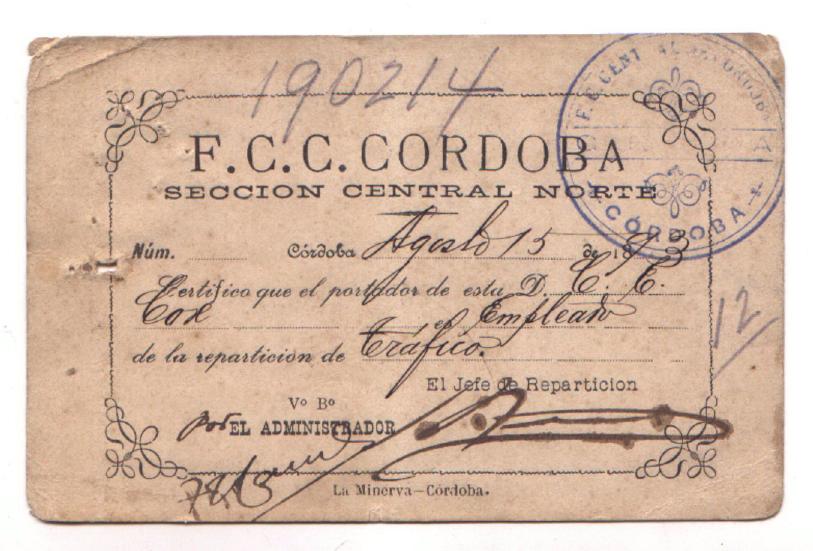 190214
F.C.C.CORDOBA
SECCION CENTRAL NORTE
CÓRDOBA
Núm. Córdoba Agosto 15 de 1893
Certifico que el portador de esta D. C. C.
Cox es Empleado
de la reparticion de Tráfico.
12
El Jefe de Reparticion
Vº Bº
por EL ADMINISTRADOR
La Minerva—Córdoba.